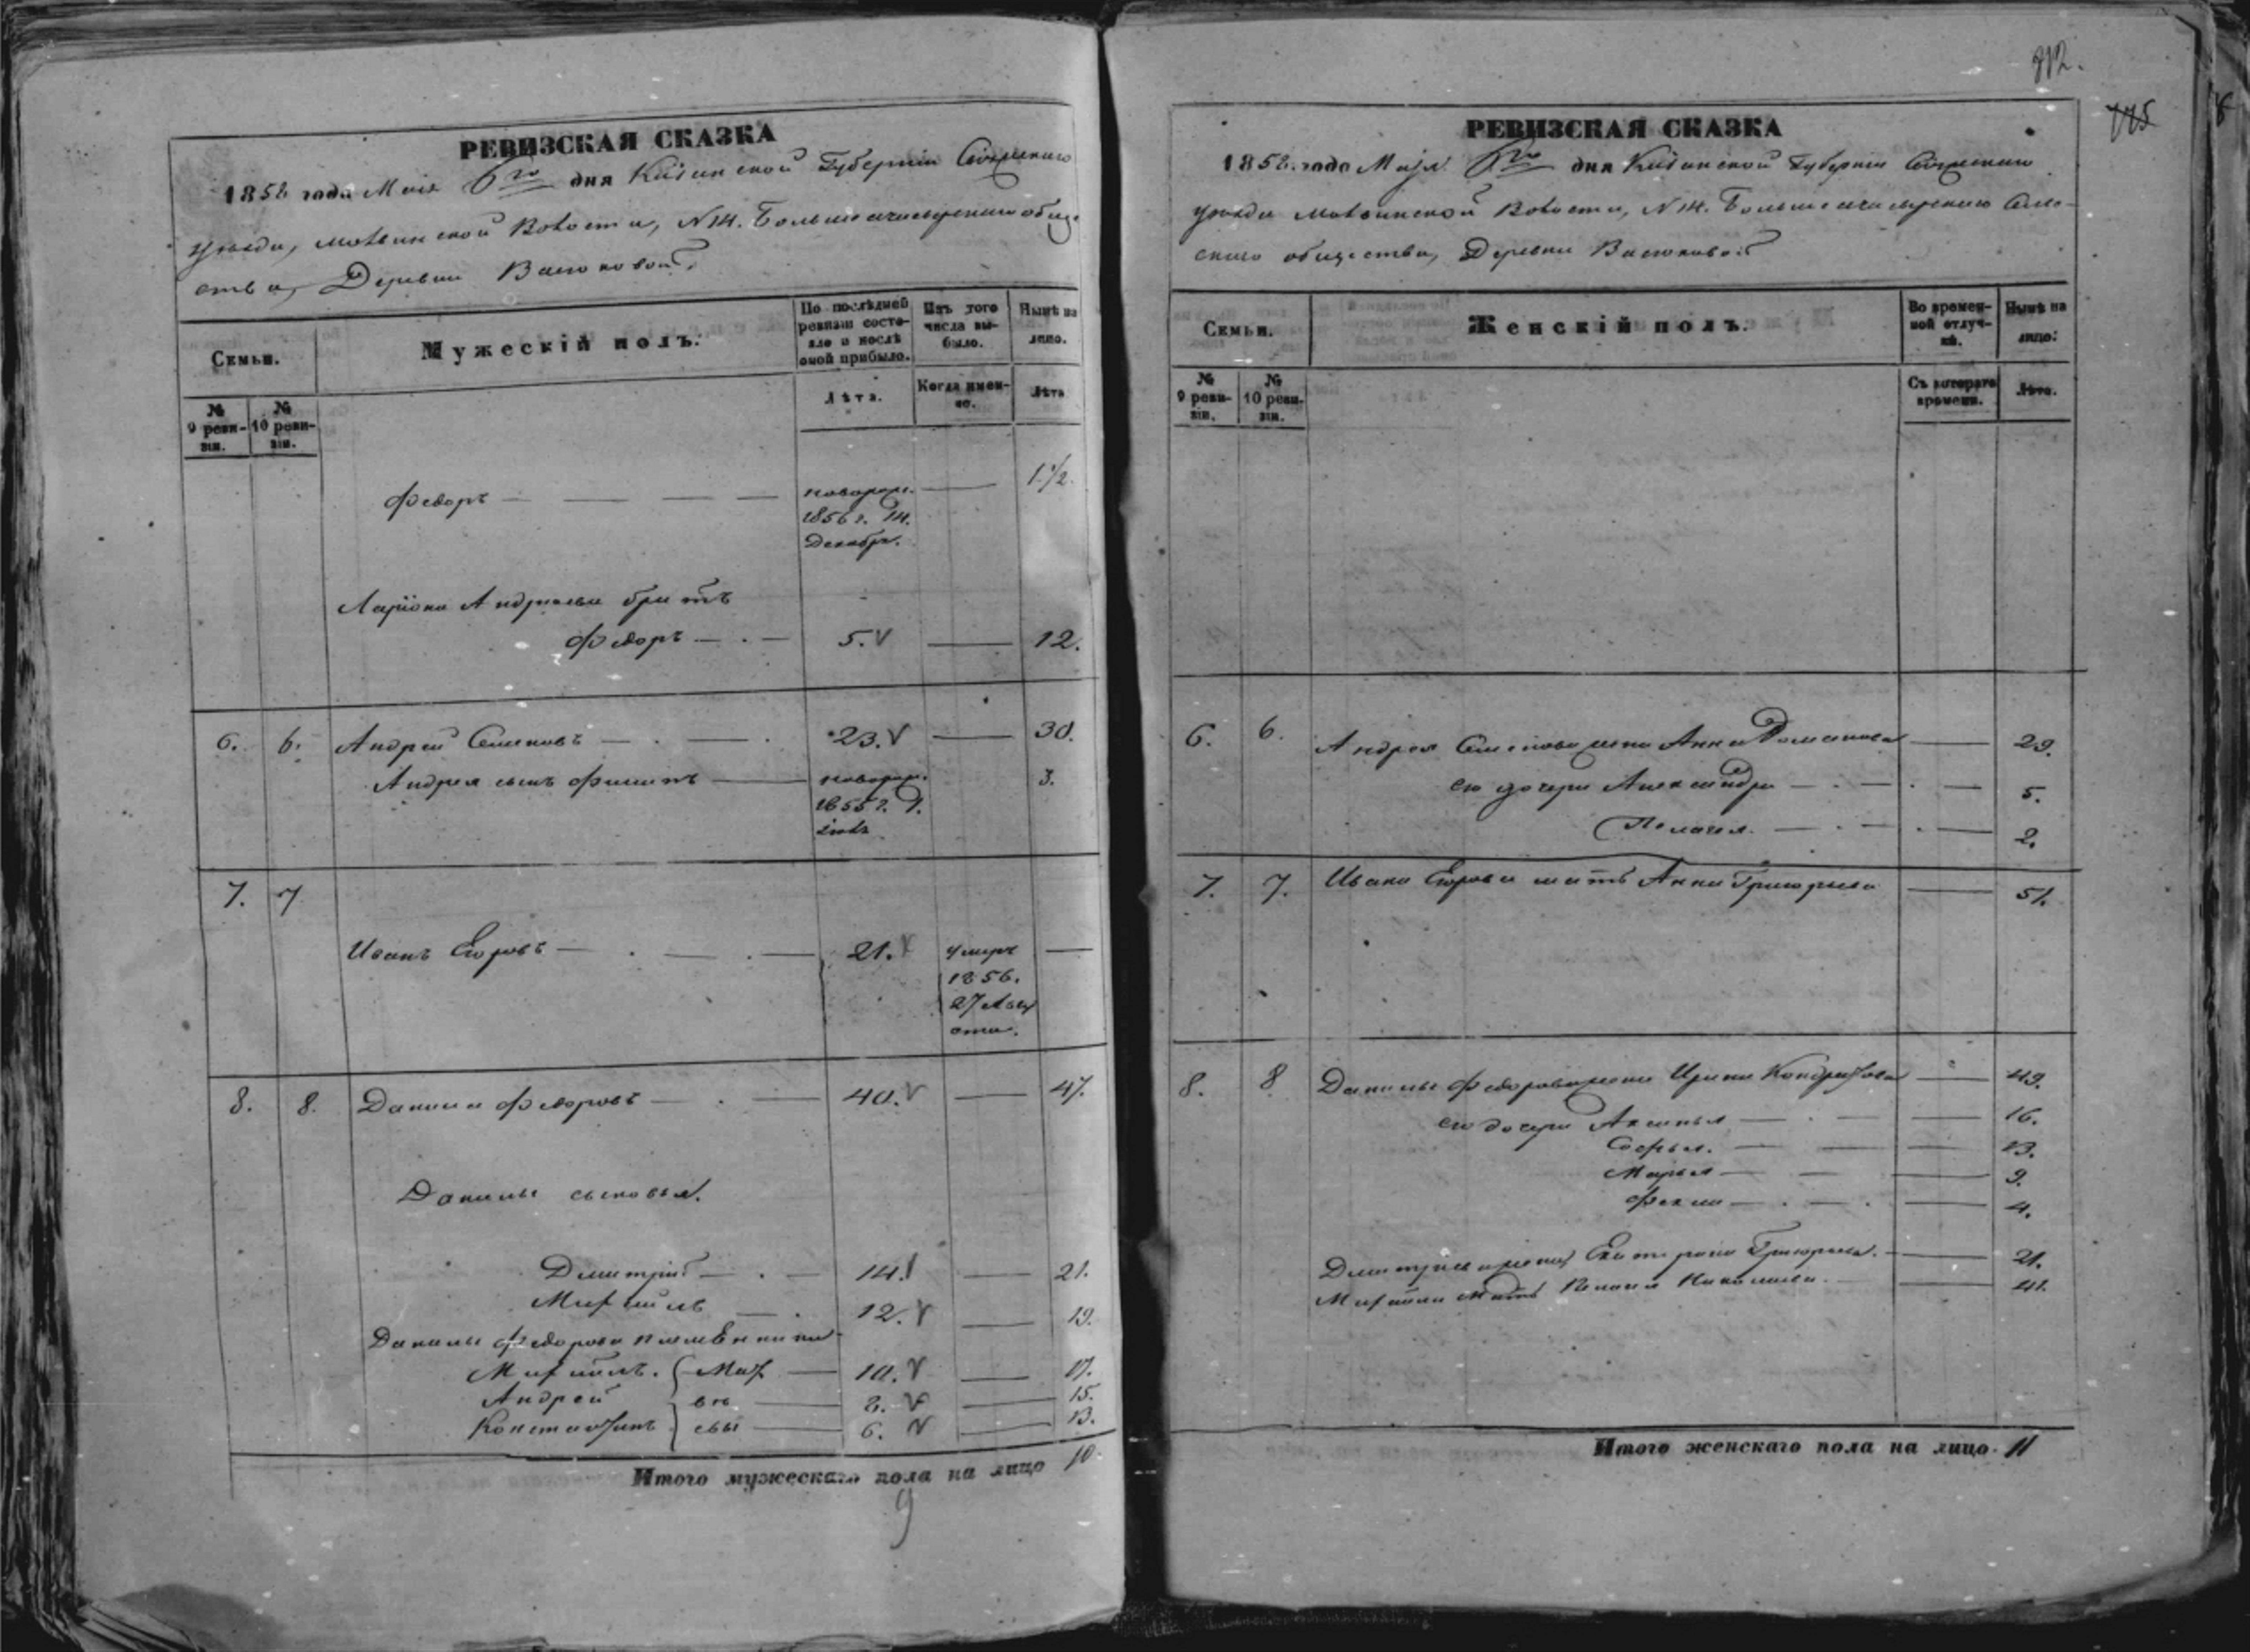 РЕВИЗСКАЯ СКАЗКА
1858 года Мая 6го дня Казанской Губерніи
уезда, волости, N 14.
ства, Деревни Васюковой
Семьи.
Мужескій полъ.
По послѣдней ревизіи состояло и послѣ оной прибыло.
Изъ того числа выбыло.
Нынѣ на лицо.
№ 9 ревизіи.
№ 10 ревизіи.
Лѣта.
Когда именно.
Лѣта
Федоръ — новорож. 1856 г. 14. Декабр. — 1 1/2.
Ларіона Андреева братъ
Федоръ — 5. — 12.
6. 6. Андрей Семеновъ — 23. — 30.
Андрея сынъ Филипъ — новорож. 1855 г. — 3.
7. 7 Иванъ Егоровъ — 21. умеръ 1856. 27 Августа. —
8. 8. Данила Федоровъ — 40. — 47.
Данилы сыновья.
Дмитрій — 14. — 21.
Михайлъ — 12. — 19.
Данилы Федорова племянники
Михайлъ. — 10. — 17.
Андрей — 8. — 15.
Константинъ — 6. — 13.
Итого мужескаго пола на лицо 10.
9
775
РЕВИЗСКАЯ СКАЗКА
1858. года Мая 6го дня Казанской Губерніи
уезда волости, N 14.
скаго общества, Деревни Васюковой
Семьи.
Женскій полъ.
Во временной отлучкѣ.
Нынѣ на лицо.
№ 9 ревизіи.
№ 10 ревизіи.
Съ котораго времени.
Лѣта.
6. 6. Андрея Семенова жена Анна — 29.
его дочери Александра — 5.
Пелагея — 2.
7. 7. Ивана Егорова мать Анна Григорьева — 51.
8. 8 Данилы Федорова жена Ирина — 49.
его дочери Аксинья — 16.
Софья. — 13.
Марья — 9.
Фекла — 4.
Дмитрія жена Екатерина Григорьева. — 21.
Михайла мать Пелагея Николаева. — 41.
Итого женскаго пола на лицо 11